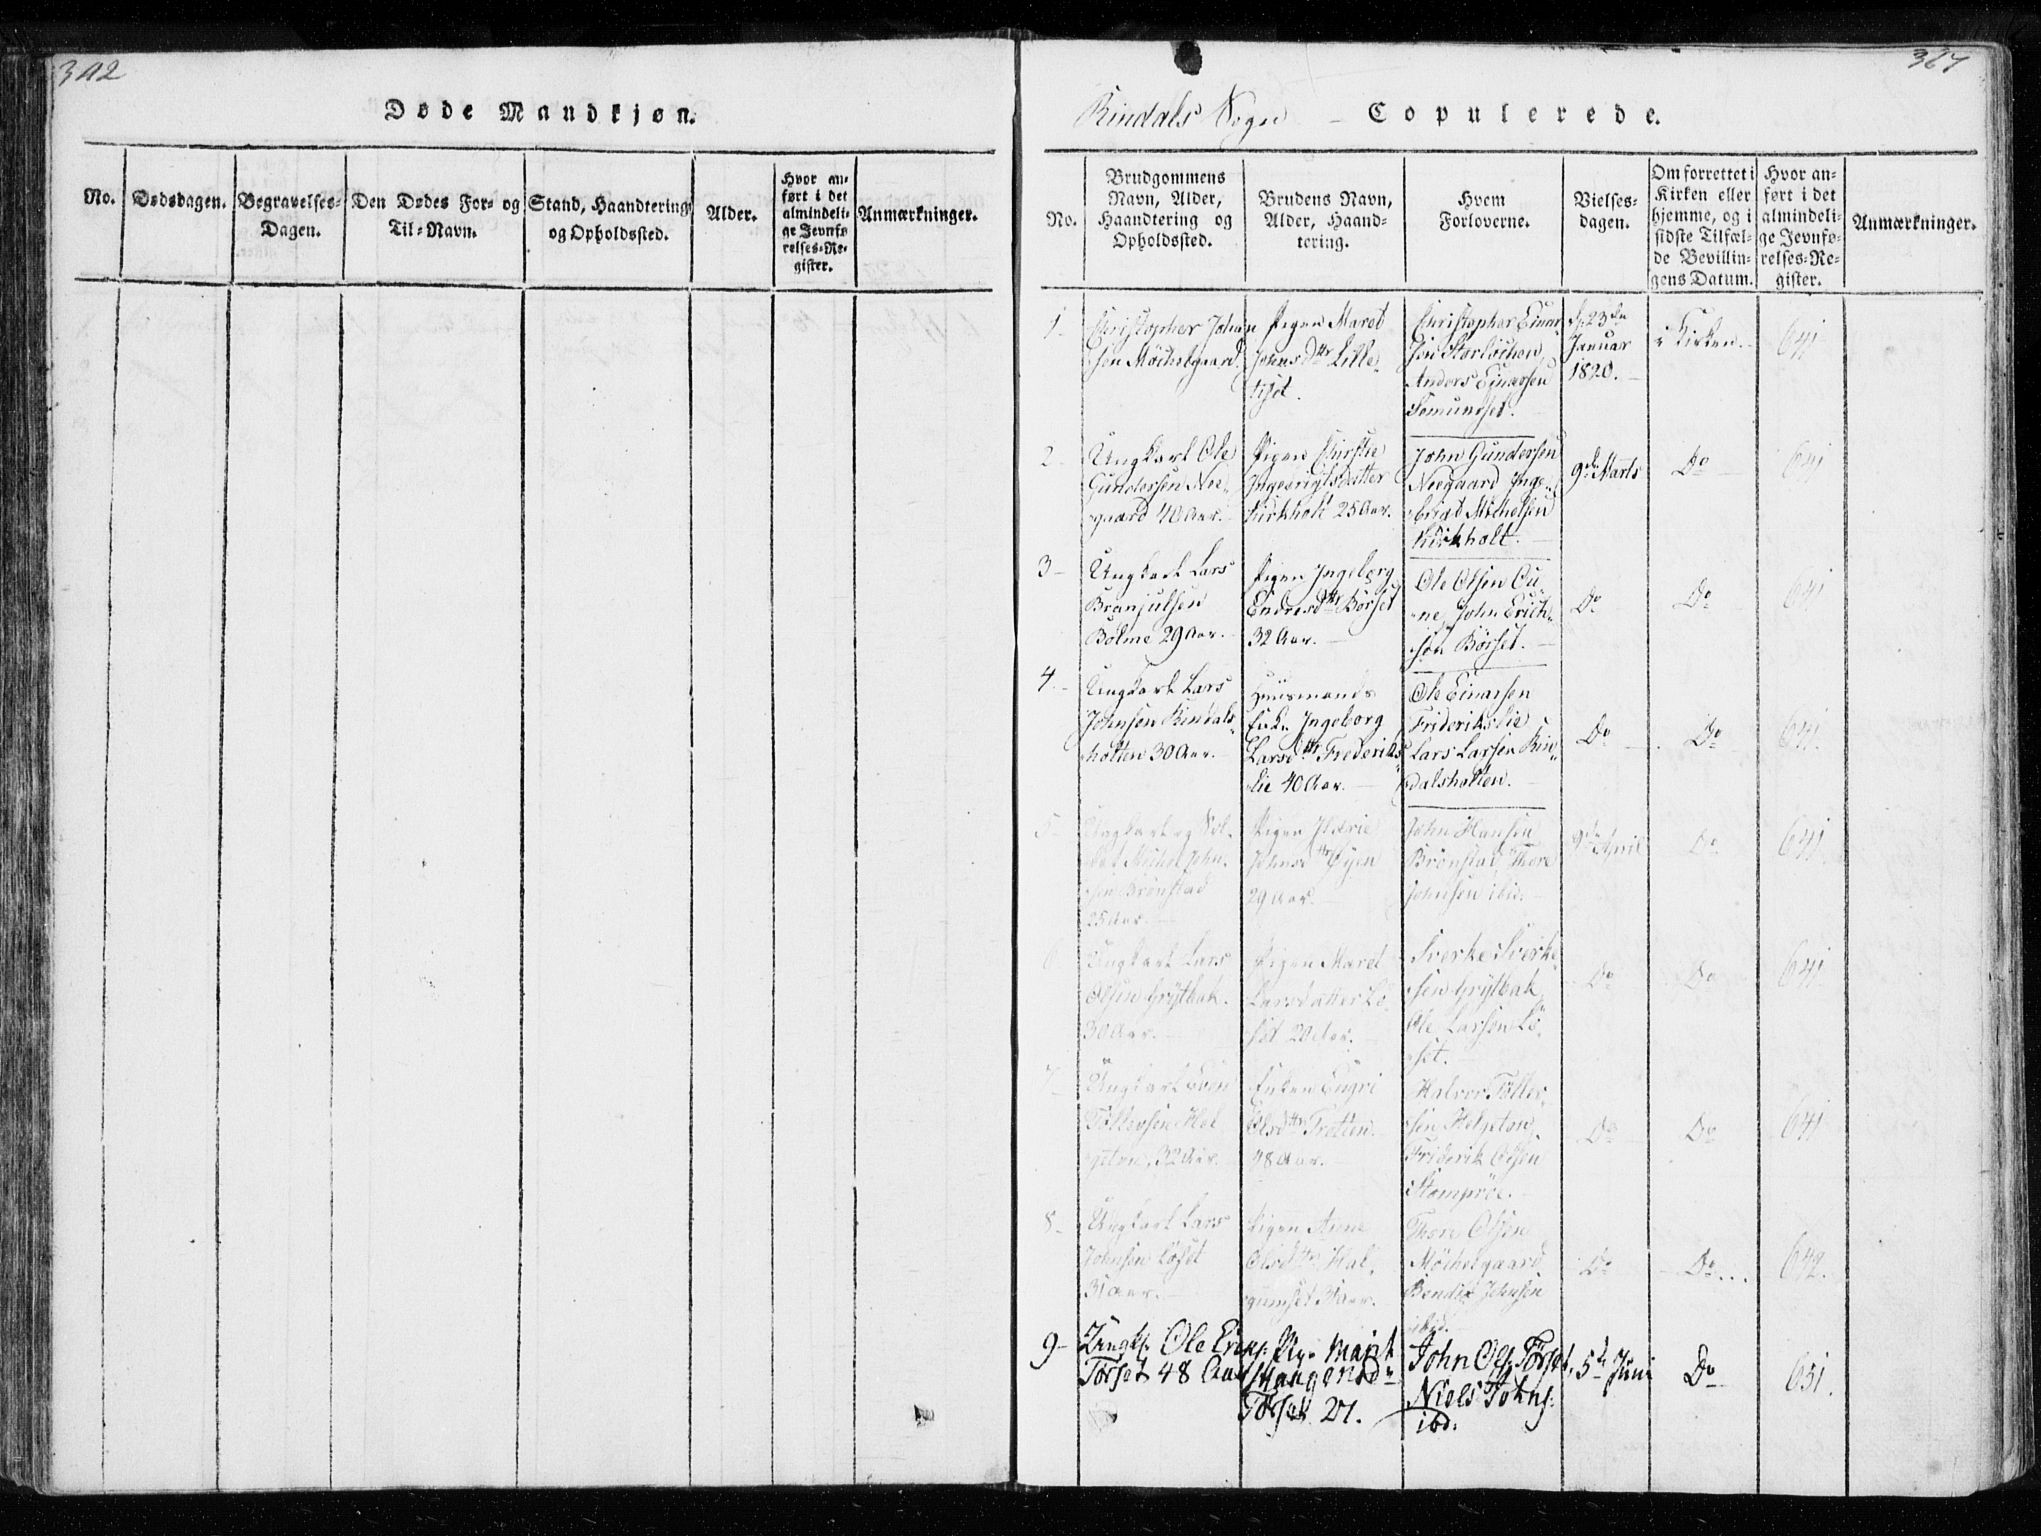 302
Døde Mandkjøn.
No.
Dødsdagen.
Begravelses-
Dagen.
Den Dødes For- og
Til-Navn.
Stand, Haandtering
og Opholdssted.
Alder.
Hvor an-
ført i det
almindeli-
ge Jevnfø-
relses-Re-
gister.
Anmærkninger.
367
Rindals Sogn - Copulerede.
No.
Brudgommens
Navn, Alder,
Haandtering og
Opholdssted.
Brudens Navn,
Alder, Haand-
tering.
Hvem
Forloverne.
Vielses-
dagen.
Om forrettet i
Kirken eller
hjemme, og i
sidste Tilfæl-
de Bevillin-
gens Datum.
Hvor an-
ført i det
almindeli-
ge Jevnfø-
relses-Re-
gister.
Anmærkninger.
1-
Christopher Johan
sen Möchelgaard.
Pigen Maret
Johnsdttr Lille-
Christopher Einar-
sen Storlöchen,
Anders Einarsen
Romundset.
23de
Januar
1820.
i Kirken.
641
2-
Ungkarl Ole
Gundersen Nee-
gaard 40 Aar.
Pigen Kirstie
Ingebrigtsdatter
Kirkholt 25 Aar.
John Gundersen
Neegaard, Inge-
brigt Michelsen
Kirkholt.
9de Marts
Do
641
3-
Ungkarl Lars
Branjulsen
Bolme 29 Aar.
Pigen Ingeborg
Endresdttr Börset
32 Aar.
Ole Olsen Cu-
ne, John Erich-
sen Börset.
Do
Do
641
4.-
Ungkarl Lars
Johnsen Rindals-
holten 30 Aar.
Huusmands
Enke Ingeborg
Larsdttr Frederiks-
lie 40 Aar.
Ole Einarsen
Friderikslie
Lars Larsen Rin-
dalsholten.
Do
Do
641.
5-
Ungkarl og Sol-
dat Michel John-
sen Brönstad
25 Aar.
Pigen
Johnsdttr Öyen
29 Aar.
John Hansen
Brönstad, Thore
Johnsen ibid.
9de April
Do
641
6-
Ungkarl Lars
Olsen Grytbak.
30 Aar.
Pigen Maret
Larsdatter Lö-
set 20 Aar.
Sverke Sverke-
sen Grytbak
Ole Larsen Lö-
set.
Do
Do
641
7-
Ungkarl Even
Tollevsen Hel-
gåten, 32 Aar.
Enken Engri
Olsdttr Tretten.
38 Aar.
Halvor Toller-
sen Helgeton
Friderik Olsen
Stompröe.
Do
Do
641
8-
Ungkarl Lars
Johnsen Löset
31 Aar.
Pigen Anne
Olsdttr Hal-
gumset 31 Aar.
Thore Olsen
Möchelgaard
Bendix Johnsen
ibid.
Do
Do...
642.
9-
Ungk: Ole Eriks:
Törset 48 Aar
Pige Marit
Mangensd
Törset 27.
John Ols: Törset,
Niels Johns:
ibd:
5te Juni
Do
651.